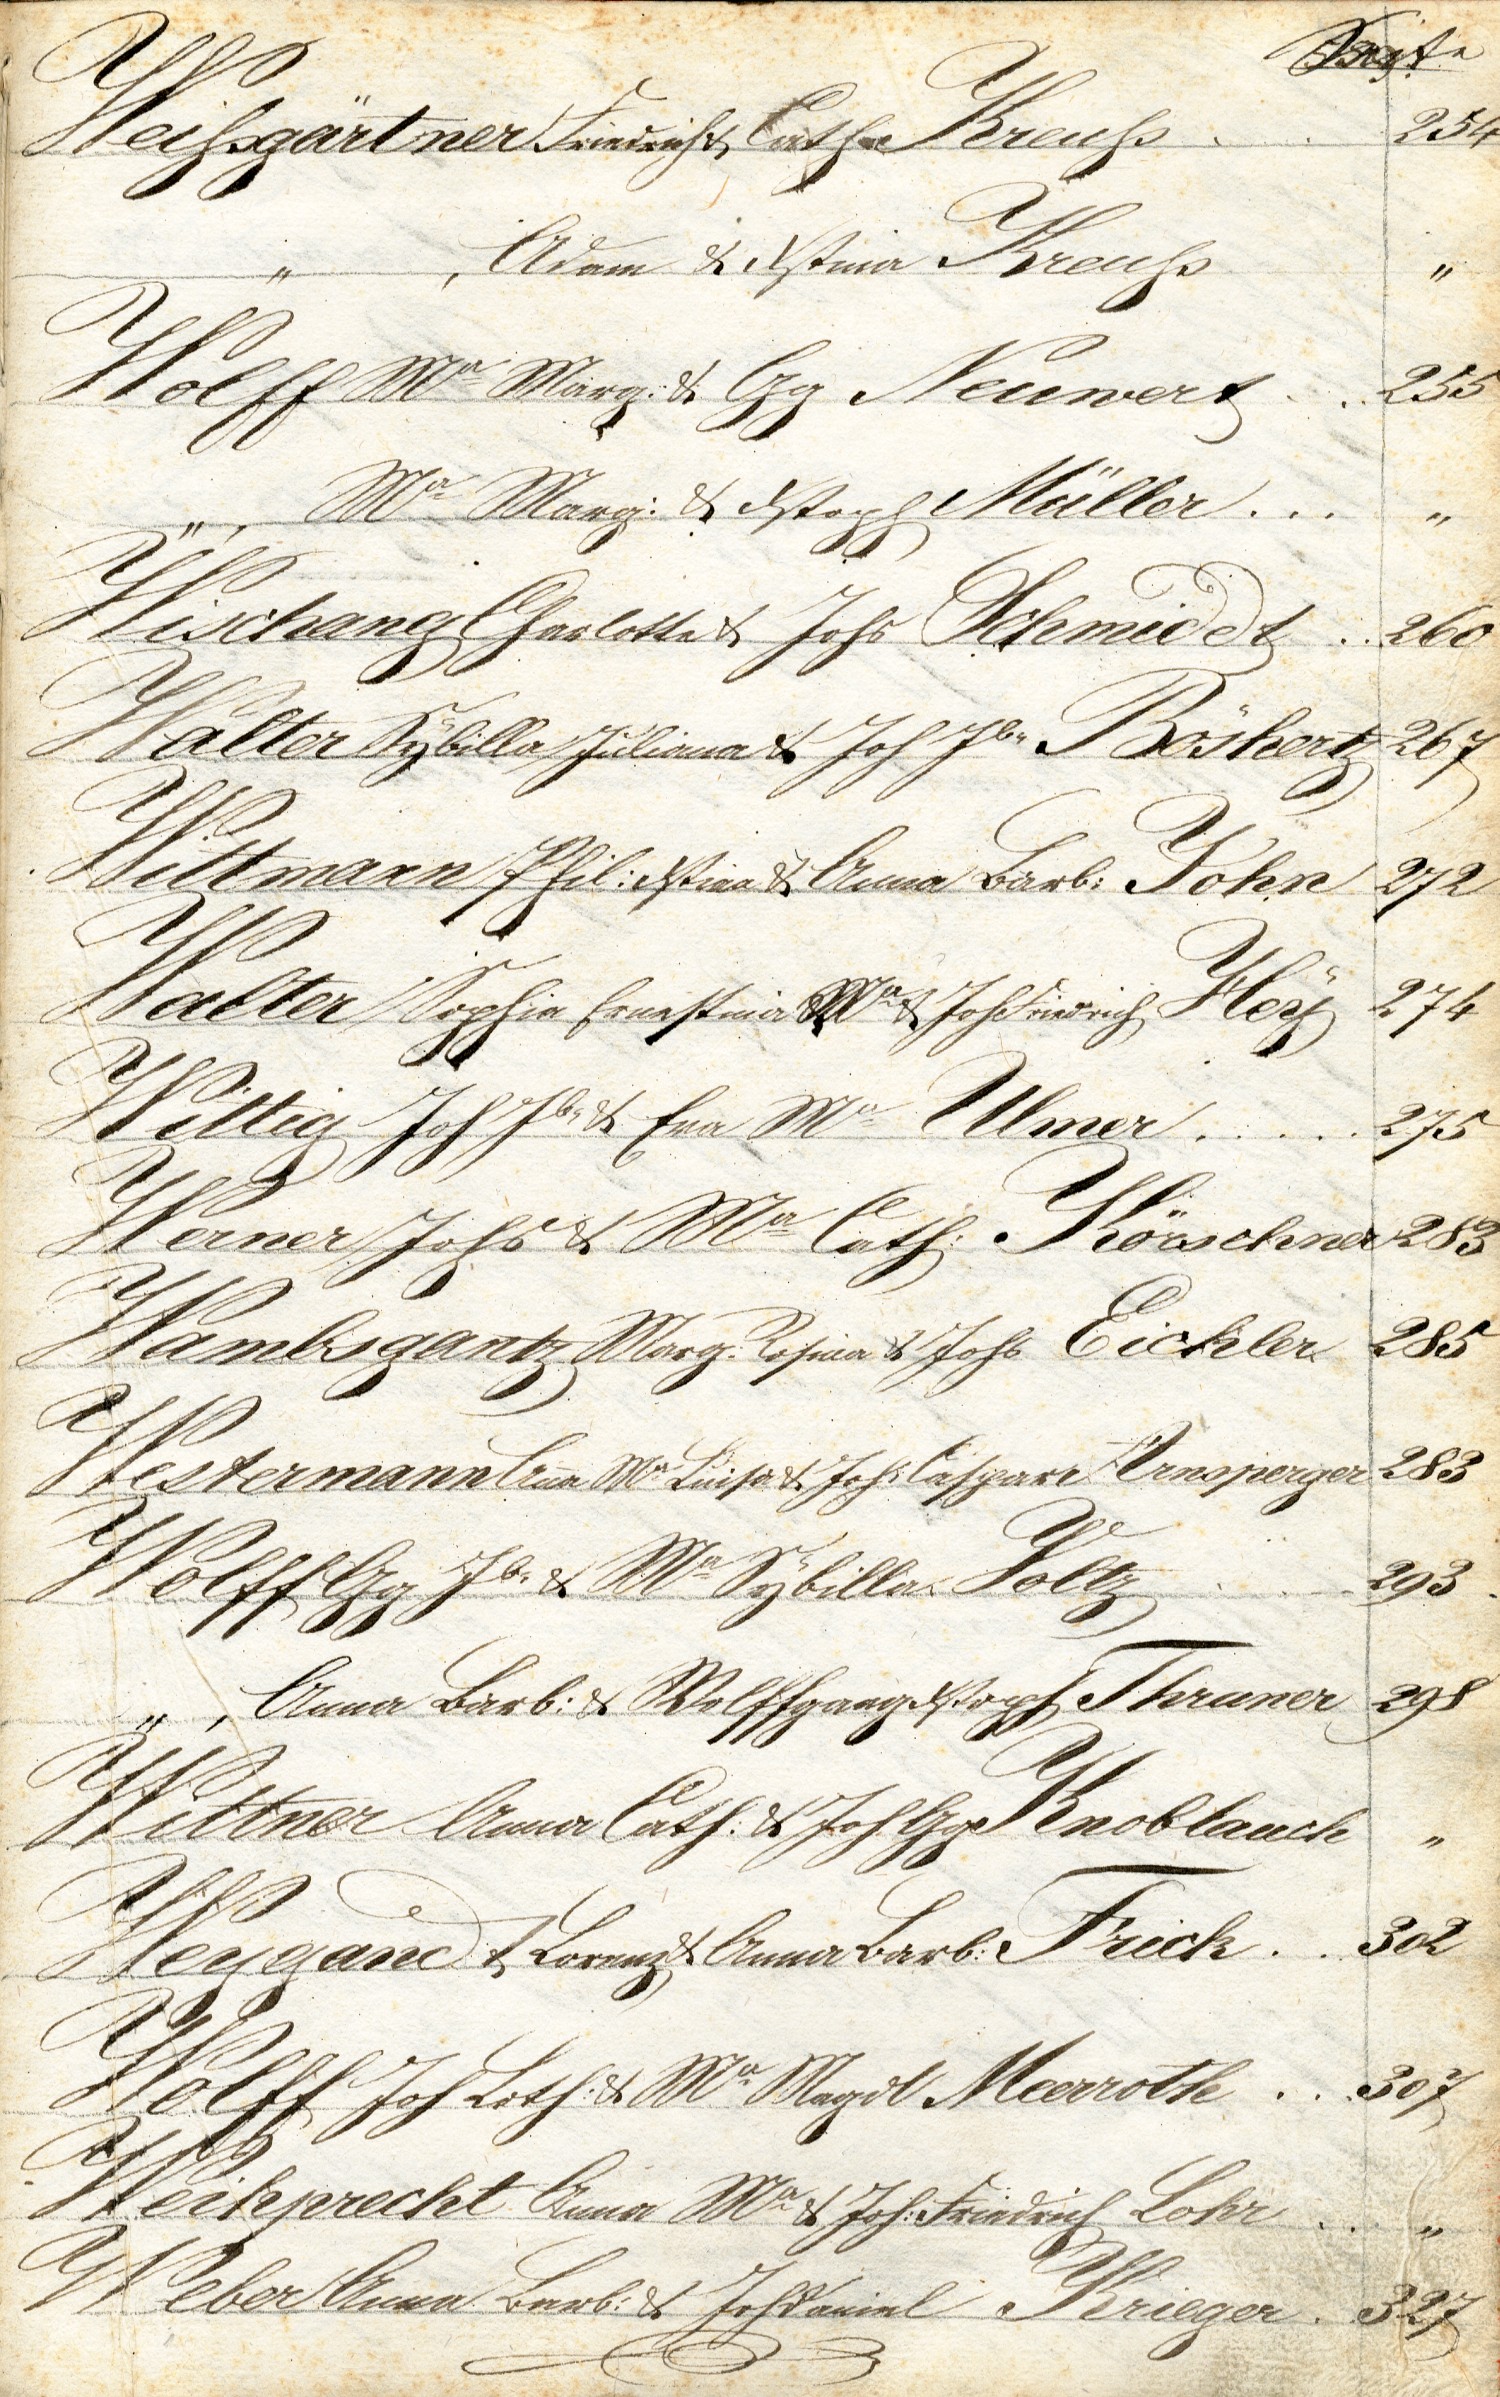 Seite
Weißgärtner Friedrich & Cath. Kreuß . . 254
" , Adam & Xstina Kreuß "
Wolff Ma Marg: & Gg Neuwert . . 255
" , Ma Marg: & Xstoph Müller . . . "
Wischang Charlotta & Johs Schmidt . . 260
Walter Sÿbilla Juliana & Joh Jb. Böshertz 267
Wittmann Phil: Xstian & Anna Barb: John 272
Walter Sophia Ernestina Ma & Joh Friedrich Heÿ 274
Wittig Joh Jb. & Eva Ma Ulmer . . . . . 275
Werner Johs & Ma Cath: Körschner 283
Wambsgantz Marg: Rosina & Johs Eichler 285
Westermann Anna Ma Luisa & Johs Caspar Arnsperger 283
Wolff Gg Jb. & Ma Sÿbilla Voltz . . . 293
" , Anna Barb: & Wolffgang Xstoph Thraner 298
Wittner Anna Cath: & Joh Gg Knoblauch "
Weygandt Lorenz & Anna Barb: Frick . . 302
Wolff Joh Loth: & Ma Magdl Meerroth . . . 307
Weikprecht Anna Ma & Joh: Friedrich Lohr . . . "
Weber Anna Barb: & Joh Daniel Krieger . 327